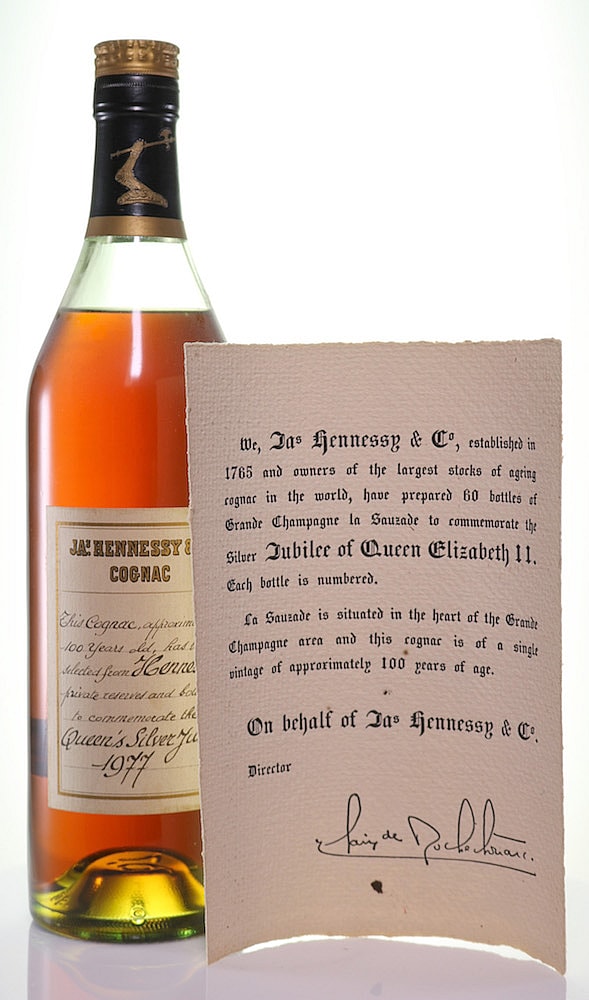 JAˢ HENNESSY &
COGNAC
This Cognac,
100 Years old, has
selected from
private reserves and
to commemorate the
Queen's Silver
1977
We, Jaˢ Hennessy & Cº, established in
1765 and owners of the largest stocks of ageing
cognac in the world, have prepared 60 bottles of
Grande Champagne la Sauzade to commemorate the
Silver Jubilee of Queen Elizabeth II.
Each bottle is numbered.
La Sauzade is situated in the heart of the Grande
Champagne area and this cognac is of a single
vintage of approximately 100 years of age.
On behalf of Jaˢ Hennessy & Cº.
Director